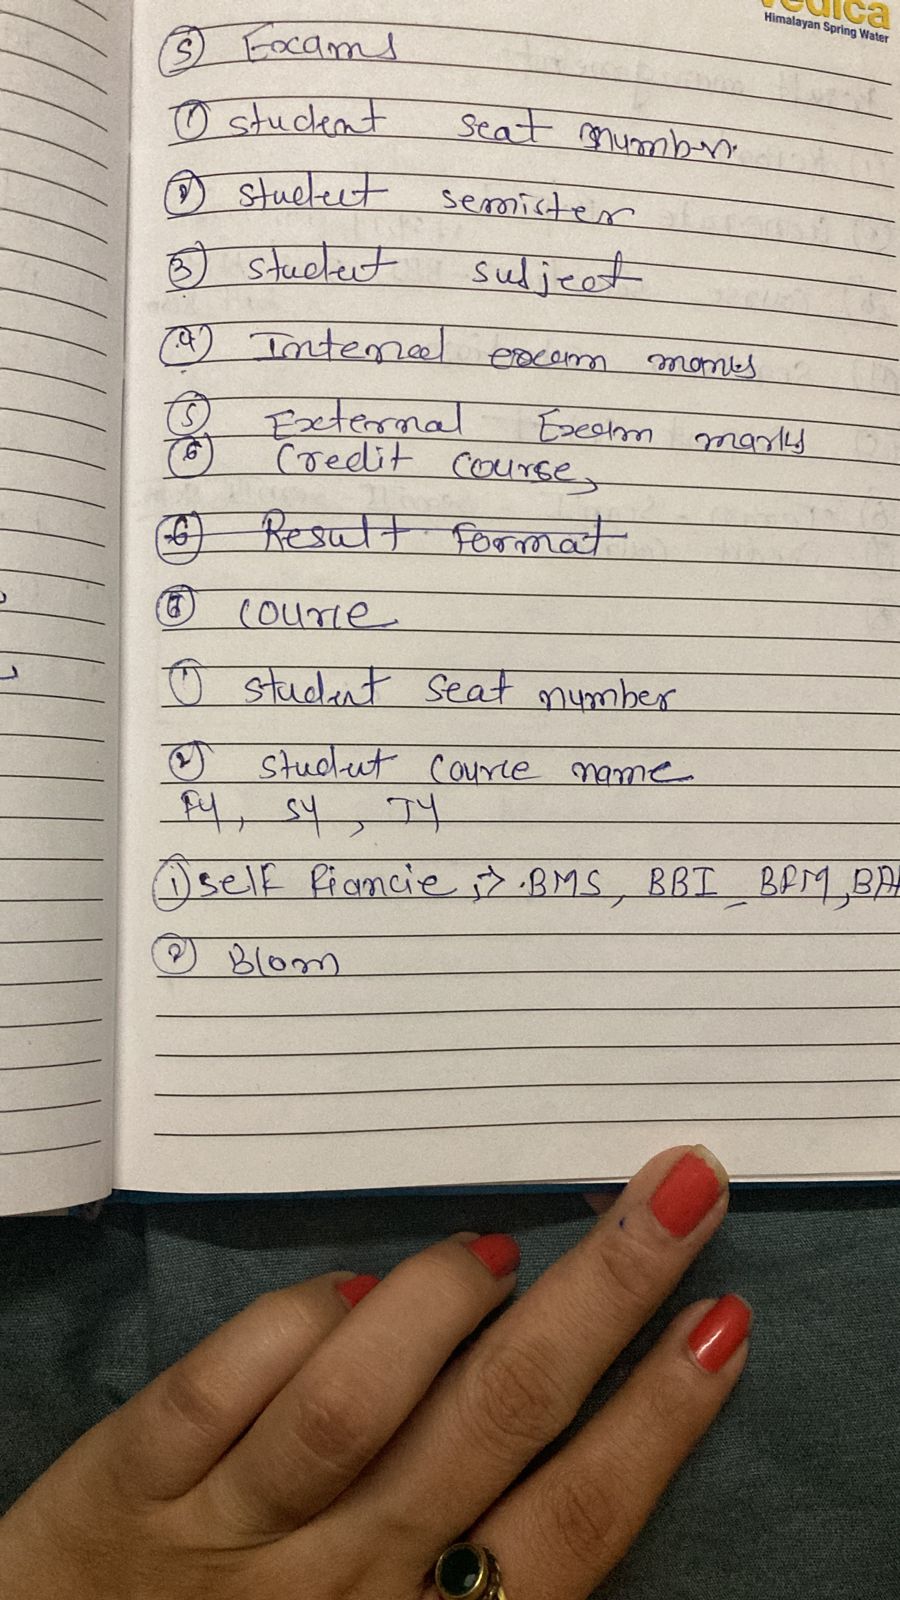 vedica
Himalayan Spring Water
5 Exams
1 student seat number.
2 student semister
3 student subject
4 Internal exam marks
5 External Exam marks
6 Credit course,
6 Result format
6 course
1 student seat number
2 student course name
FY, SY, TY
1 self fiancie, → .BMS, BBI_ BFM, BA
2